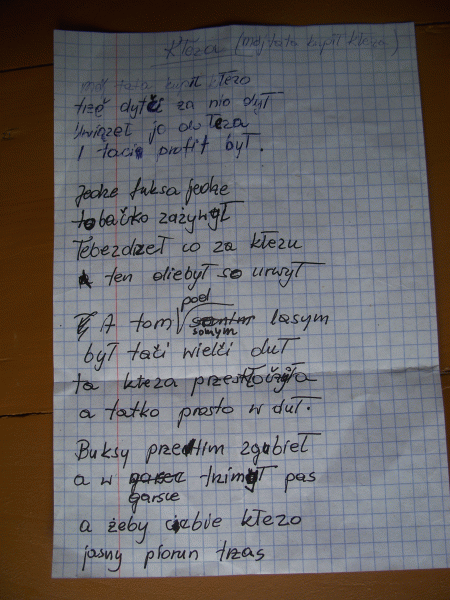 Kłeza (mój tata kupił kłeza)
mój tata kupił kłezo
trzě dytči za nio dył
Uwiązeł jo do łeza
I taci profit był.
Jedze fuksa jedze
tobačko zażynył
Tebezdzeł co za kłezu
ten diebył so urwył
A tom pod somym lasym
był tači wielči duł
ta kłeza
a tatko prosto w duł.
Buksy przedtim zgubieł
a w garsce trzimył pas
a żeby ciebie kłezo
jasny piorun trzas